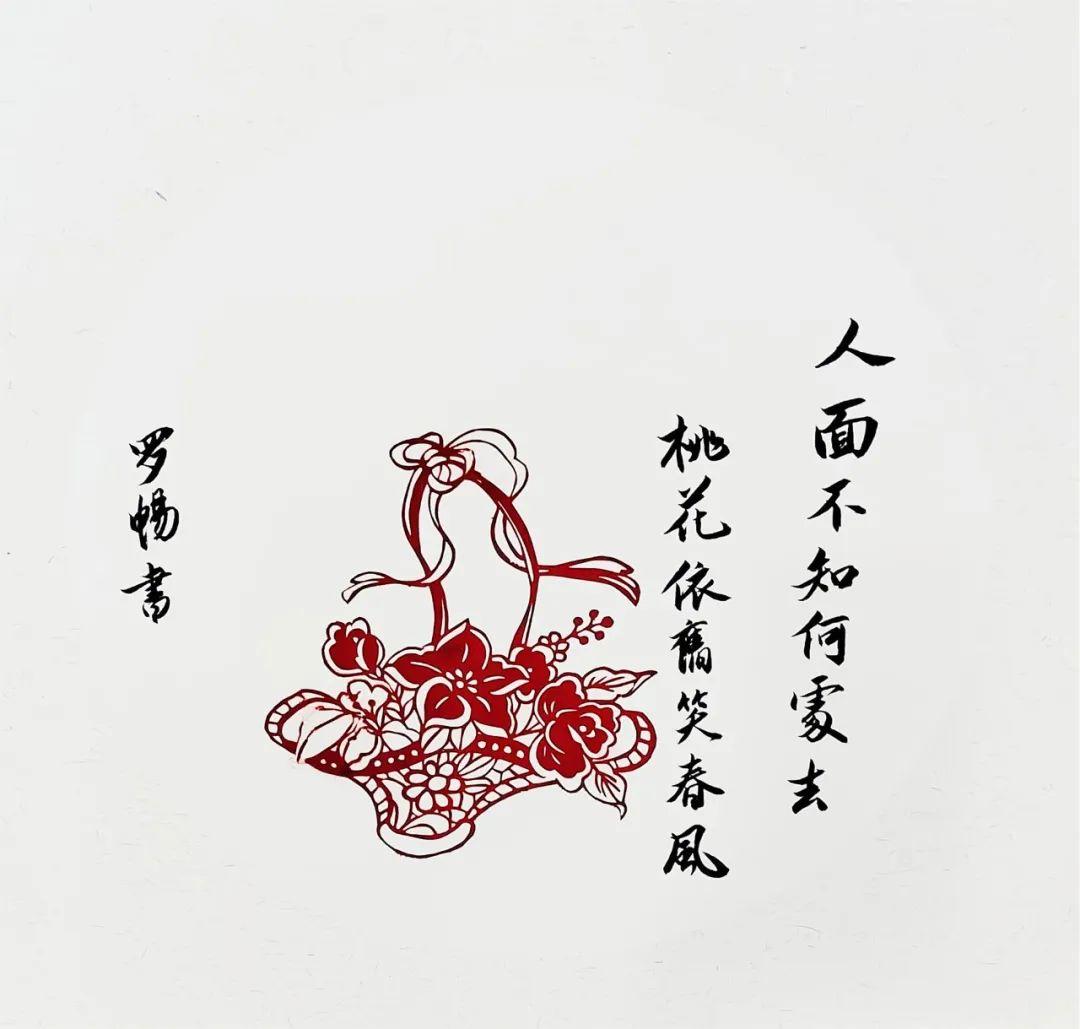 人面不知何處去
桃花依舊笑春風
罗暢書